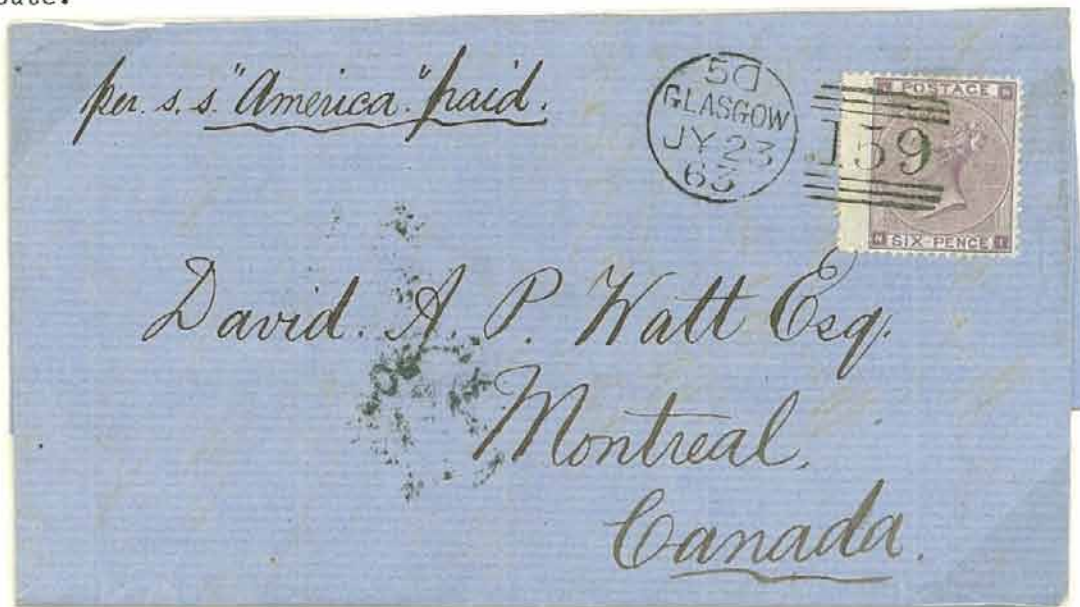 per. s. s. "America." paid.
5D
GLASGOW
JY 23
63
159
POSTAGE
SIX-PENCE
David. A. P. Watt Esq.
Montreal,
Canada.